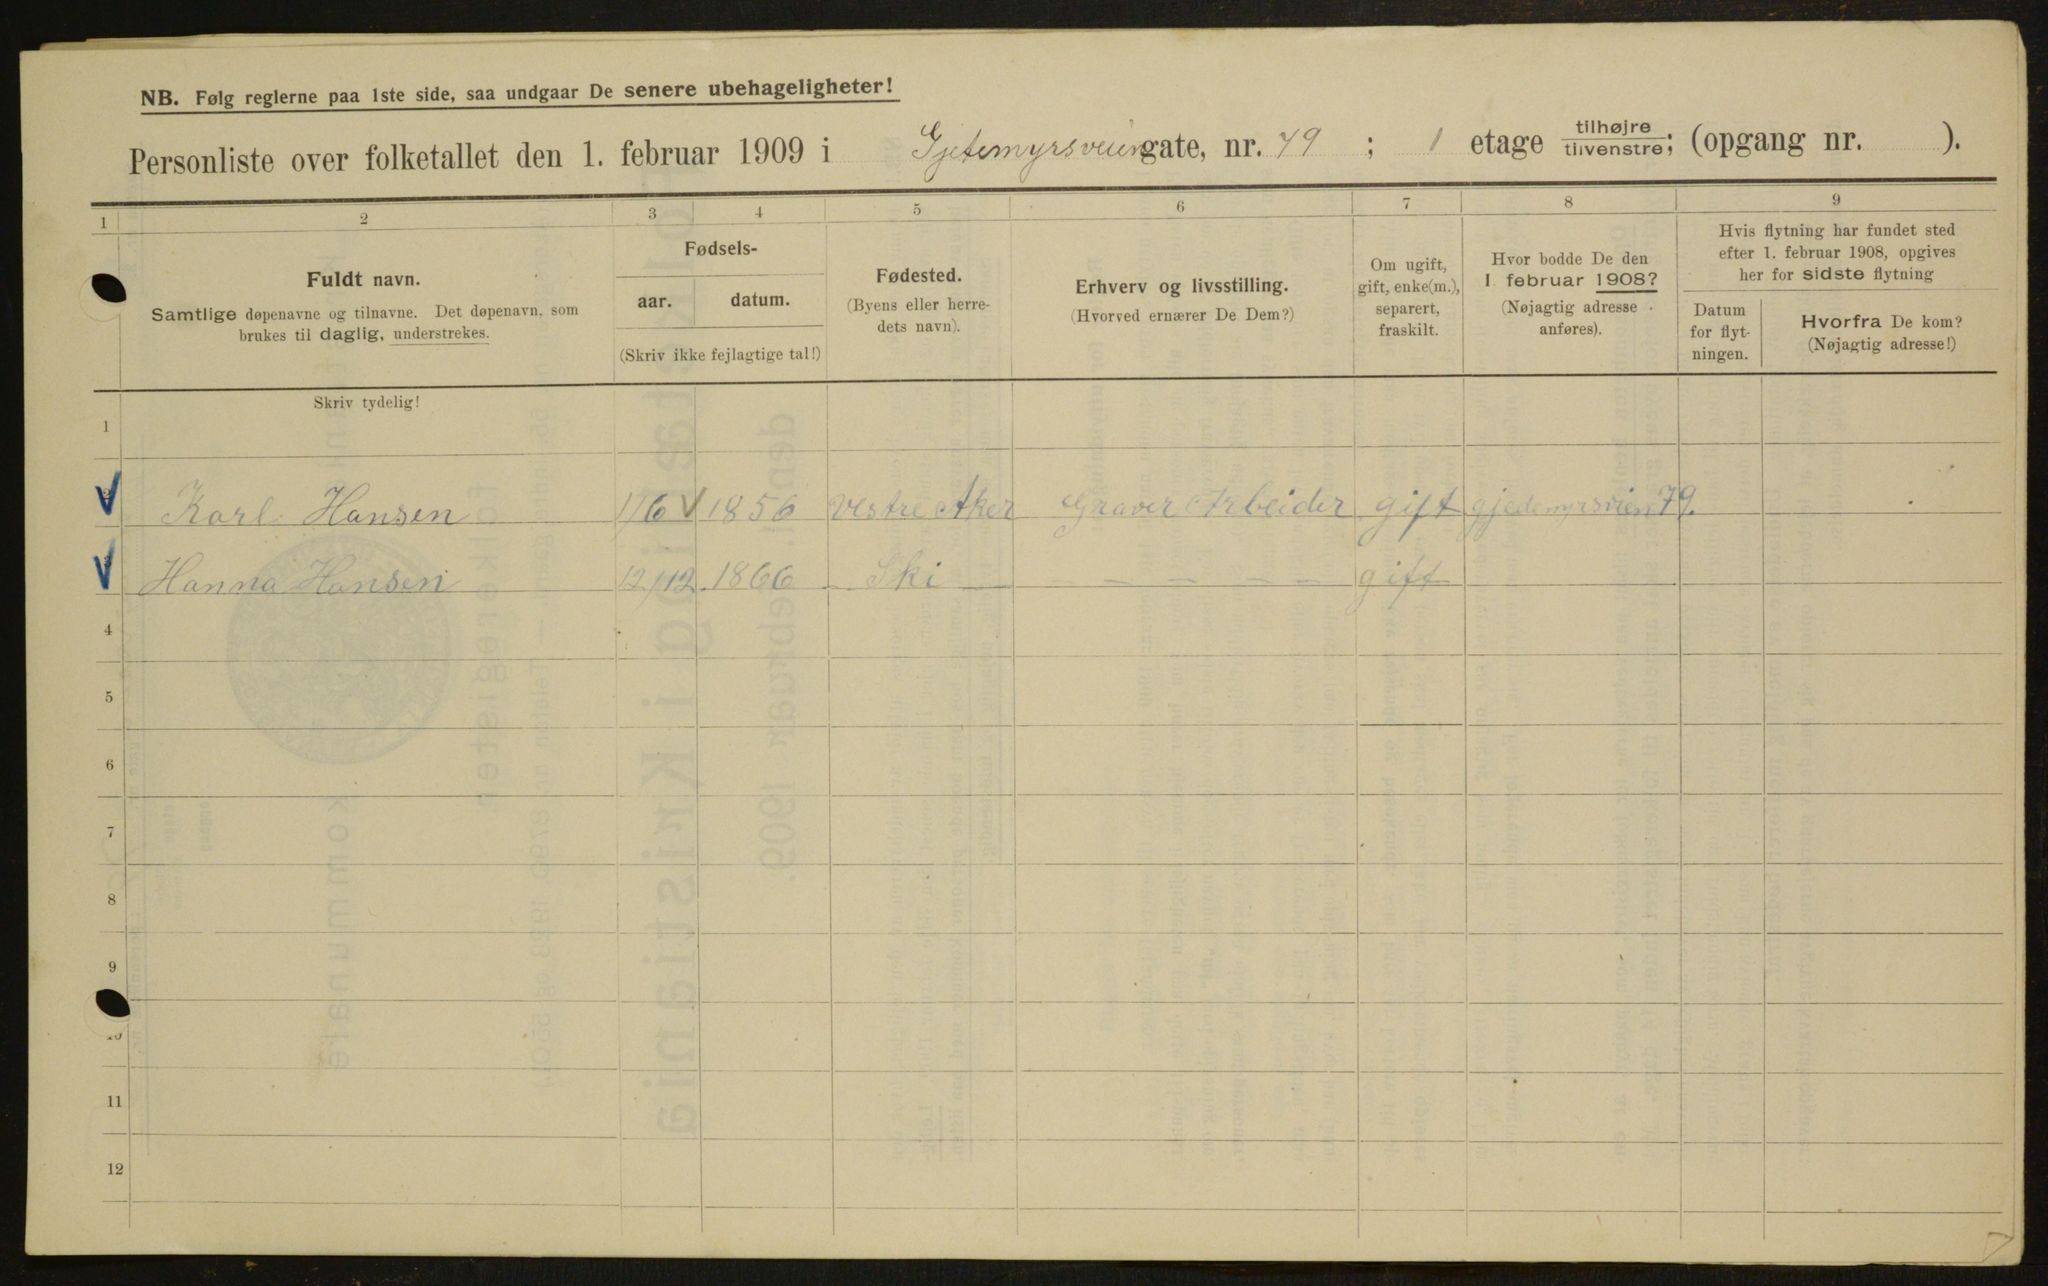 NB. Følg reglerne paa 1ste side, saa undgaar De senere ubehageligheter!
Personliste over folketallet den 1. februar 1909 i Gjetemyrsveien gate, nr. 79 ; 1 etage tilhøjre tilvenstre; (opgang nr. ).
1 2 3 4 5 6 7 8 9
Fuldt navn.
Samtlige døpenavne og tilnavne. Det døpenavn, som
brukes til daglig, understrekes.
Fødsels-
aar. datum.
(Skriv ikke fejlagtige tal!)
Fødested.
(Byens eller herre-
dets navn).
Erhverv og livsstilling.
(Hvorved ernærer De Dem?)
Om ugift,
gift, enke(m.),
separert,
fraskilt.
Hvor bodde De den
1. februar 1908?
(Nøjagtig adresse
anføres).
Hvis flytning har fundet sted
efter 1. februar 1908, opgives
her for sidste flytning
Datum
for flyt-
ningen.
Hvorfra De kom?
(Nøjagtig adresse!)
Skriv tydelig!
1
2 Karl Hansen 1856 Vestre Aker Graver Arbeider gift gjedemyrsvien 79.
Hanna Hansen 12/12 1866 – Ski – – – – – – gift
4
5
6
7
8
9
10
11
12